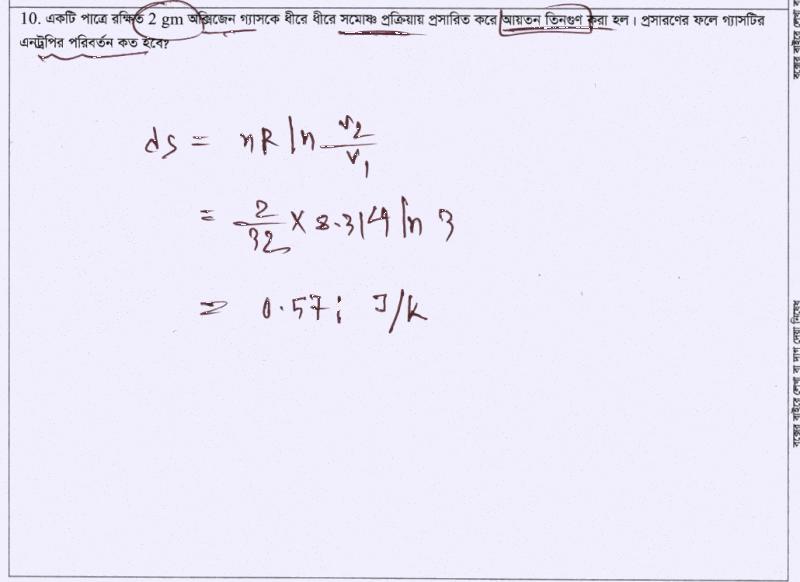 10. একটি পাত্রে রক্ষিত 2 gm অক্সিজেন গ্যাসকে ধীরে ধীরে সমোষ্ণ প্রক্রিয়ায় প্রসারিত করে আয়তন তিনগুণ করা হল। প্রসারণের ফলে গ্যাসটির
এনট্রপির পরিবর্তন কত হবে?
ds = nR ln v2/v1
= 2/32 × 8.314 ln 3
= 0.571 J/K
বক্সের বাইরে লেখা বা দাগ দেয়া নিষেধ